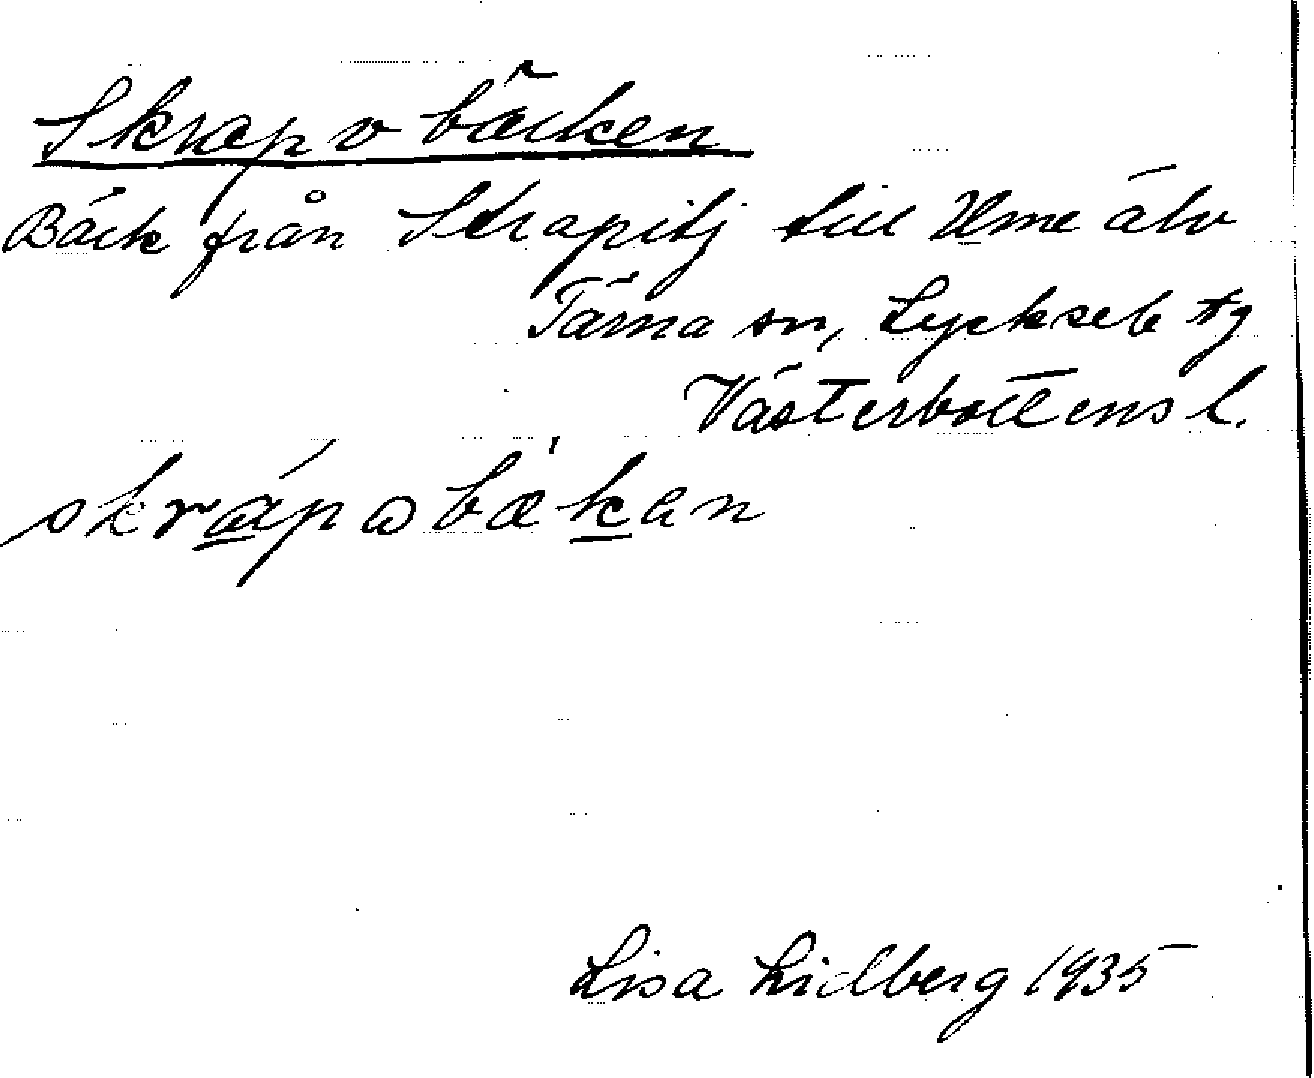 Skrapobäcken
Bäck från Skrapitj till Ume älv
Tärna sn, Lycksele tg
Västerbottens l.
skrápabækan
Lisa Lidberg 1935